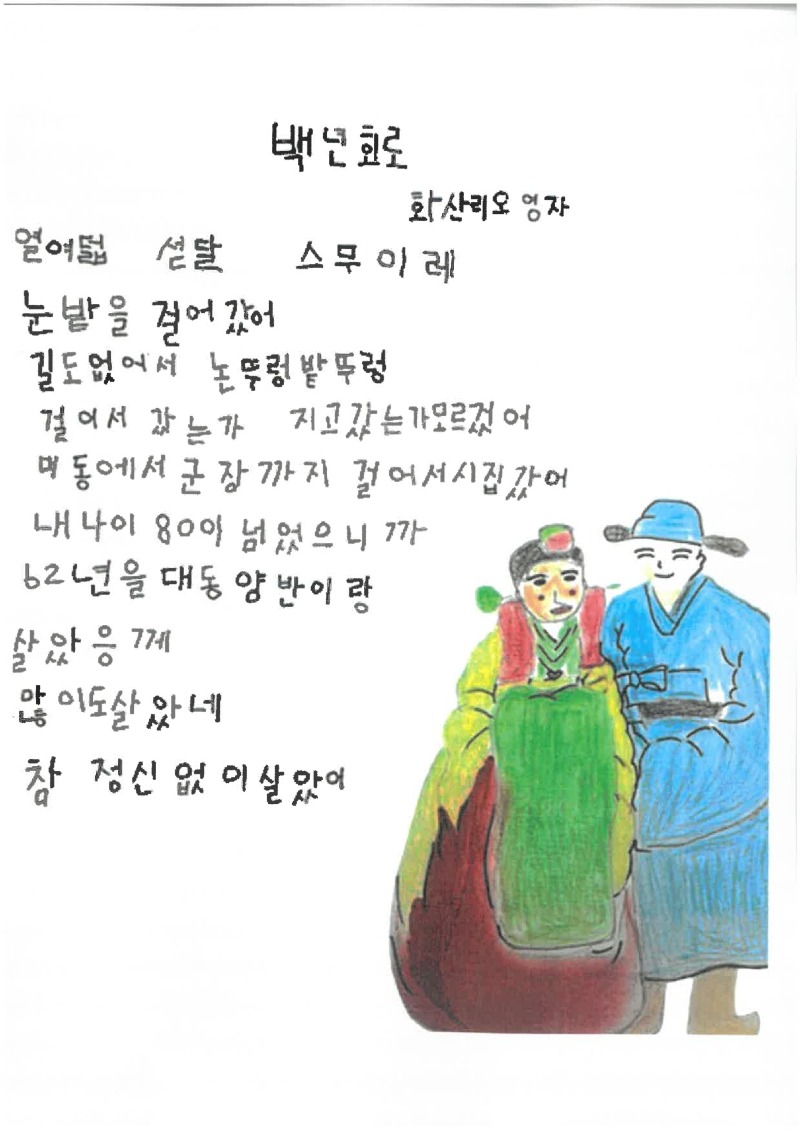 백년회로
화산리오영자
열여덟 섣달 스무이레
눈밭을 걸어갔어
길도없어서 논뚜렁밭뚜렁
걸어서 갔는가 지고갔는가모르겄어
먀동에서 군장까지 걸어서시집갔어
내나이 80이 넘었으니까
62년을 대동양반이랑
살았응께
많이도살았네
참 정신없이살았어